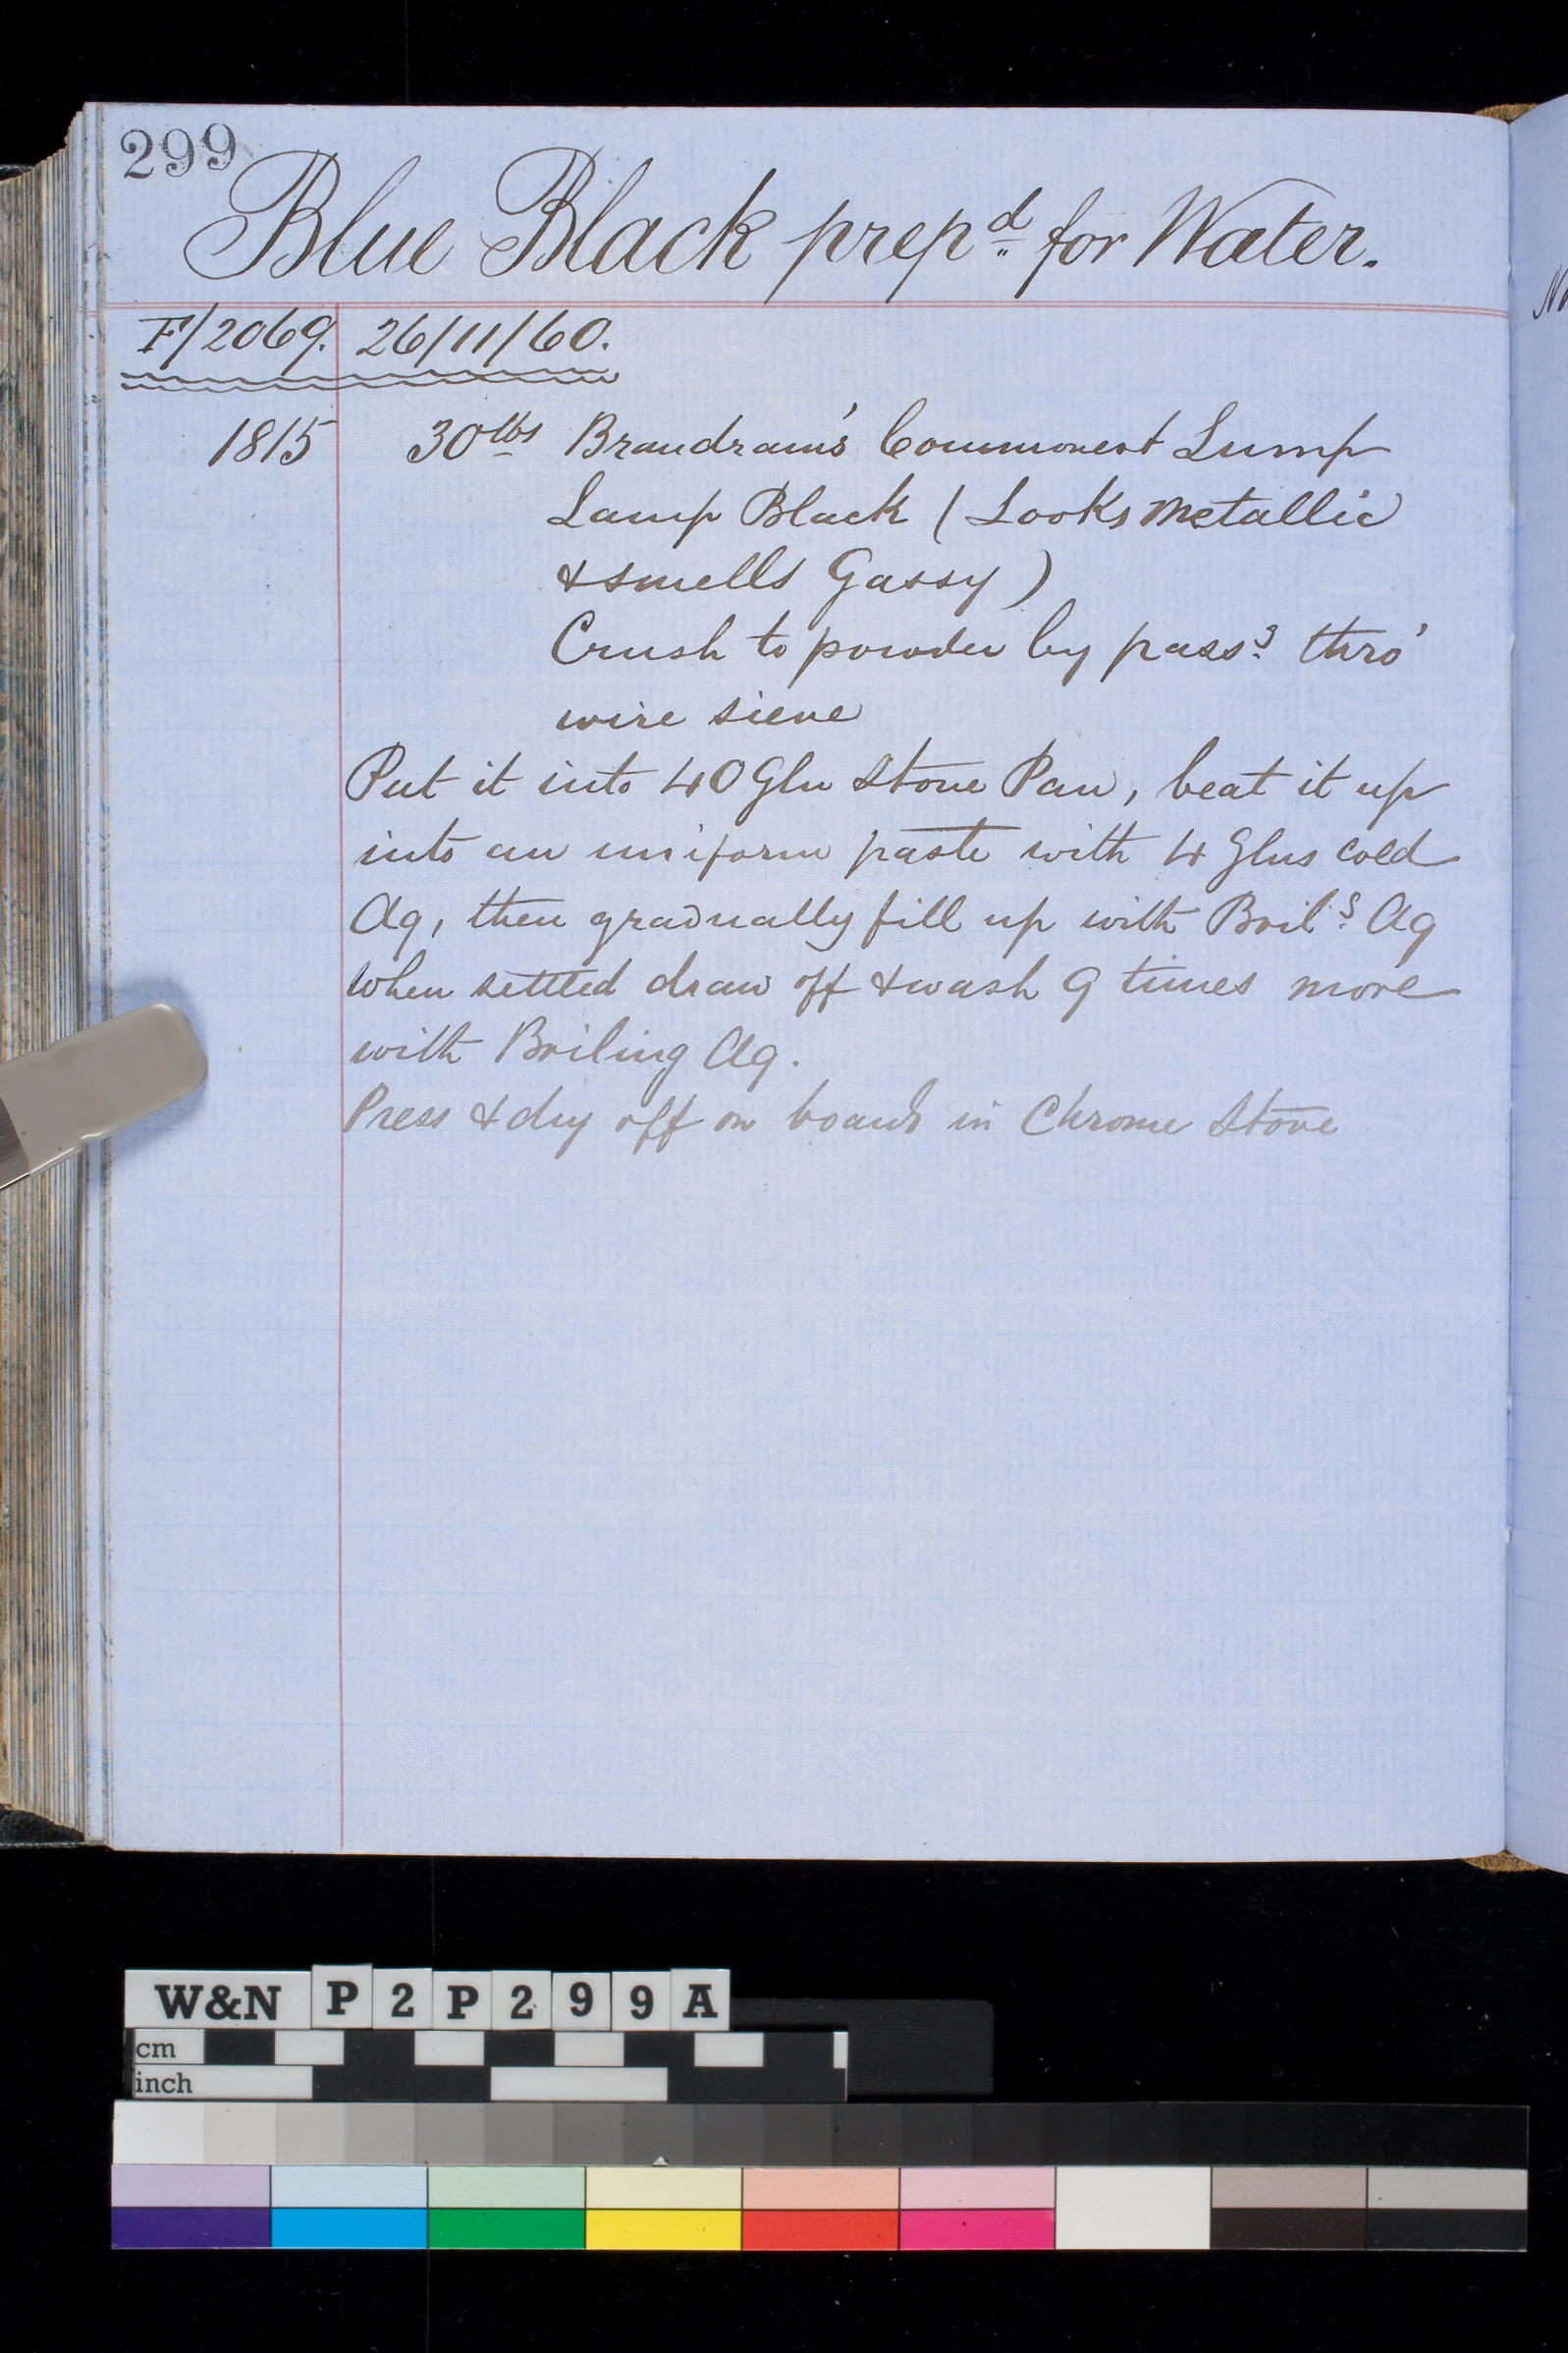 299
Blue Black prepd. for Water.
F/2069. 26/11/60.
1815 30lbs Brandram's Commonest Lump
Lamp Black (Looks metallic
& smells Gassy)
Crush to powder by passg. thro'
wire sieve
Put it into 40 Gln Stone Pan, beat it up
into an uniform paste with 4 Glns cold
Aq, then gradually fill up with Boilg. Aq
When settled draw off & wash 9 times more
with Boiling Aq.
Press & dry off on boards in Chrome Stove
W&N P2P299A
cm
inch